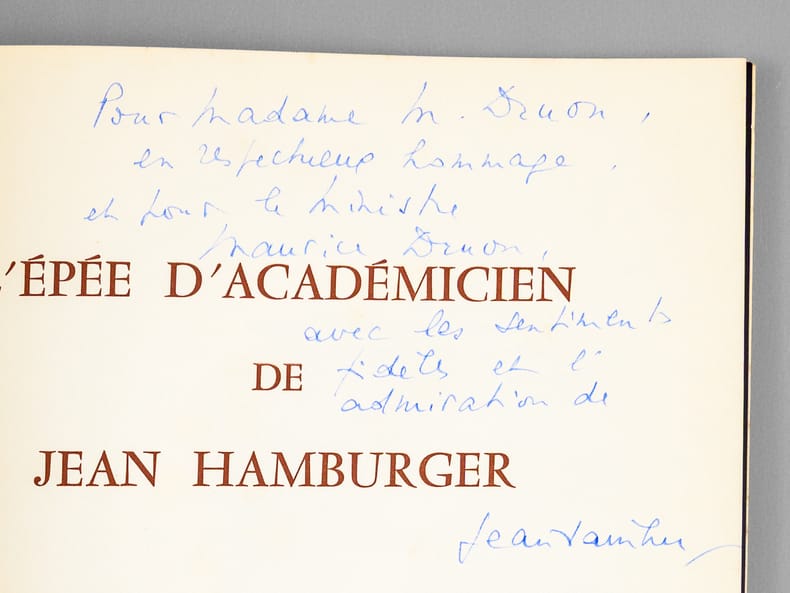 Pour Madame M. Druon,
en respectueux hommage,
et pour le Ministre
Maurice Druon,
L'ÉPÉE D'ACADÉMICIEN
avec les sentiments
DE
fidèles et l'
admiration de
JEAN HAMBURGER
Jean Hamburger